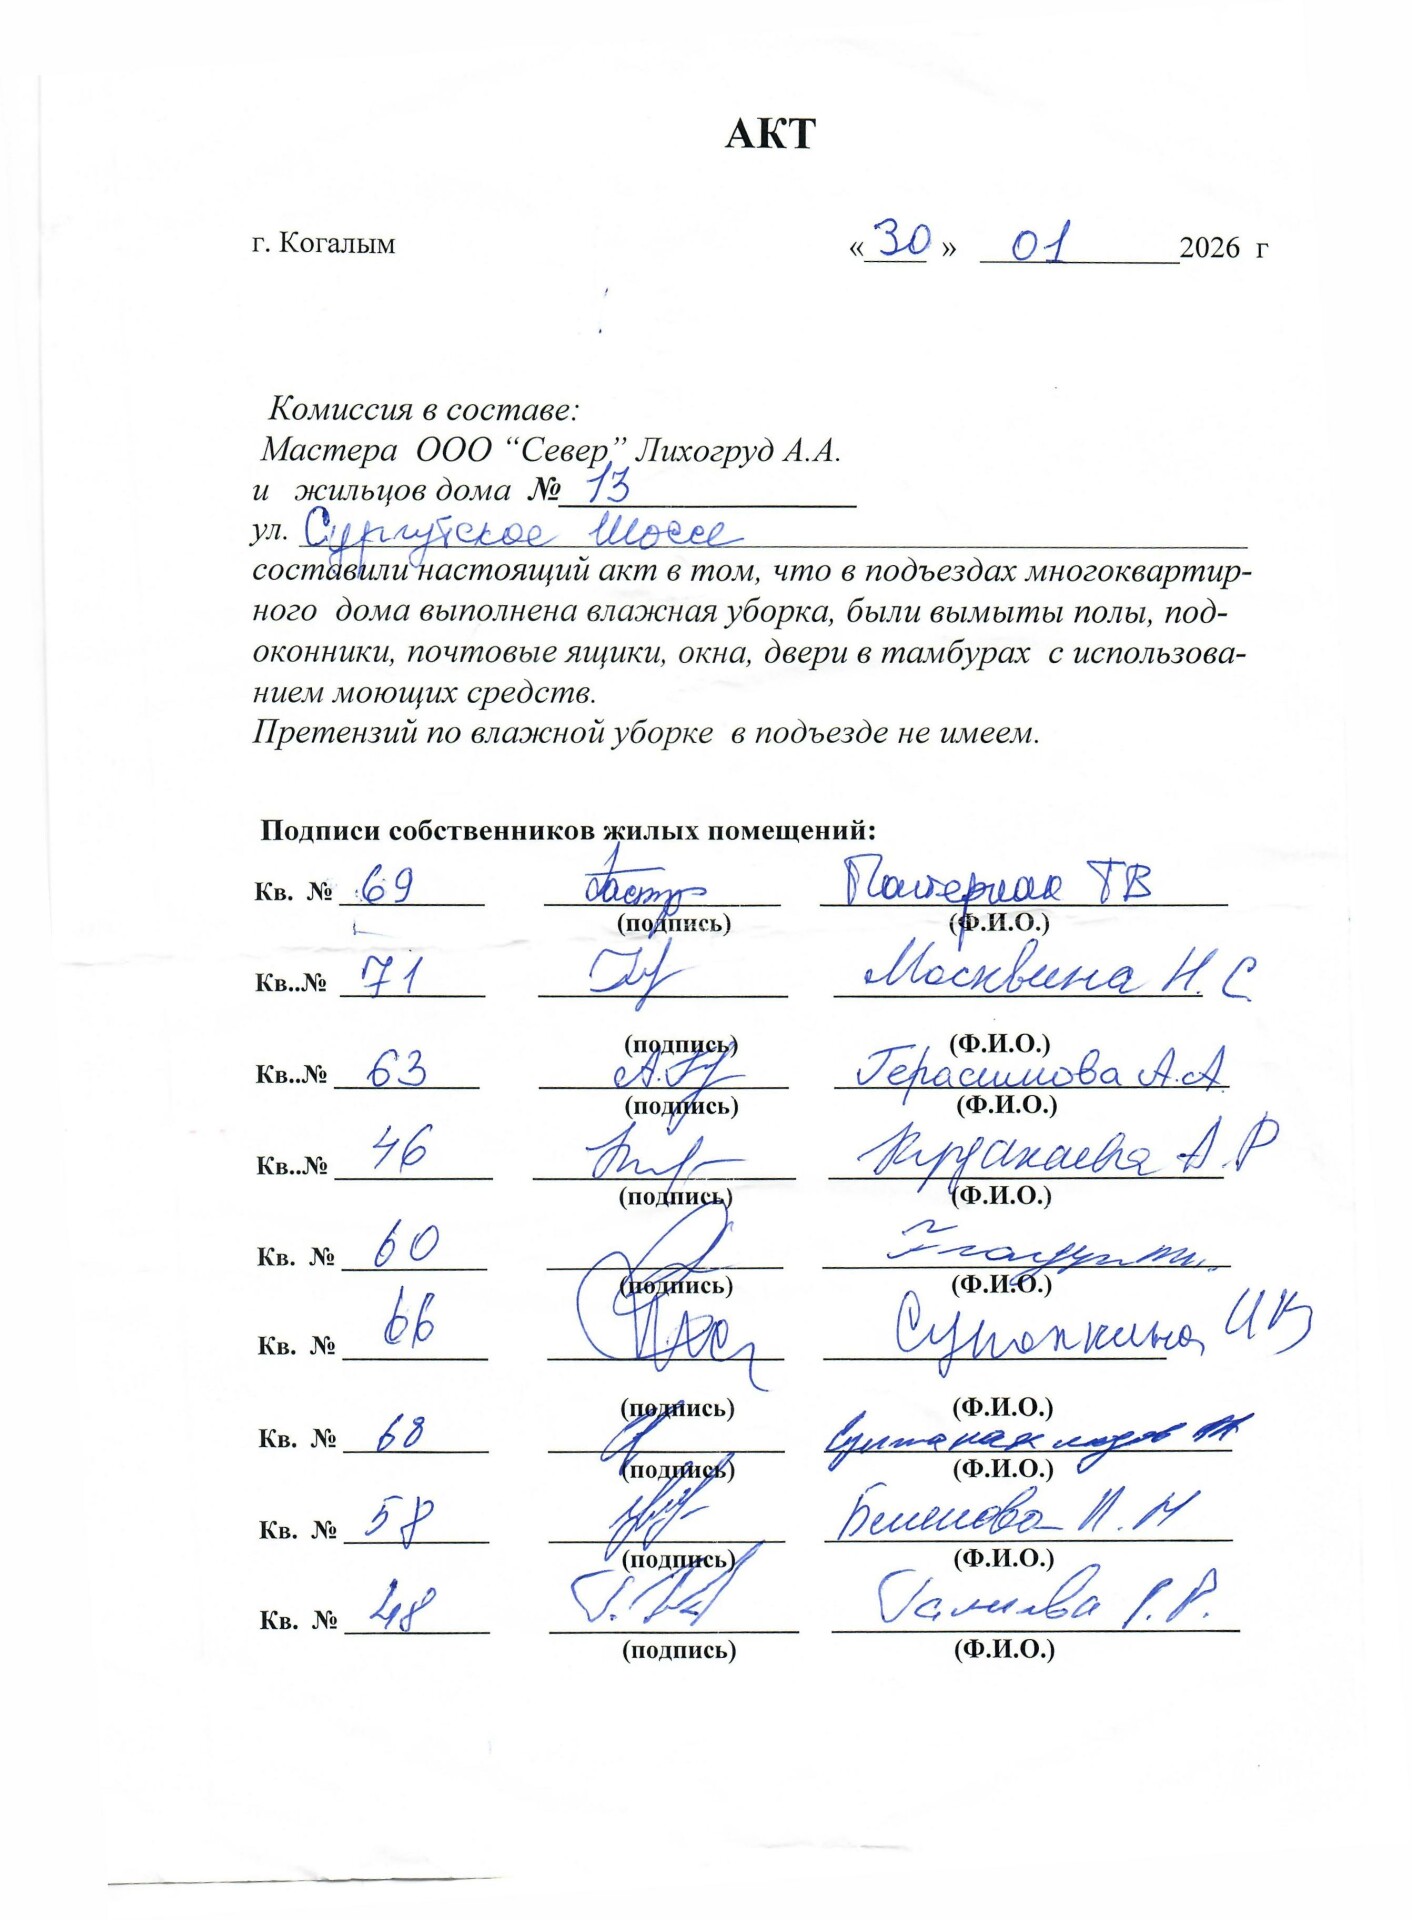 АКТ
г. Когалым «30» 01 2026 г
Комиссия в составе:
Мастера ООО “Север” Лихогруд А.А.
и жильцов дома № 13
ул. Сургутское Шоссе
составили настоящий акт в том, что в подъездах многоквартир-
ного дома выполнена влажная уборка, были вымыты полы, под-
оконники, почтовые ящики, окна, двери в тамбурах с использова-
нием моющих средств.
Претензий по влажной уборке в подъезде не имеем.
Подписи собственников жилых помещений:
Кв. № 69 Пастернак ТВ
(подпись) (Ф.И.О.)
Кв..№ 71 Москвина Н. С
(подпись) (Ф.И.О.)
Кв..№ 63 Герасимова А.А.
(подпись) (Ф.И.О.)
Кв..№ 46 А.Р
(подпись) (Ф.И.О.)
Кв. № 60
(подпись) (Ф.И.О.)
Кв. № 66 ИВ
(подпись) (Ф.И.О.)
Кв. № 68
(подпись) (Ф.И.О.)
Кв. № 58
(подпись) (Ф.И.О.)
Кв. № 48 Г.Р.
(подпись) (Ф.И.О.)